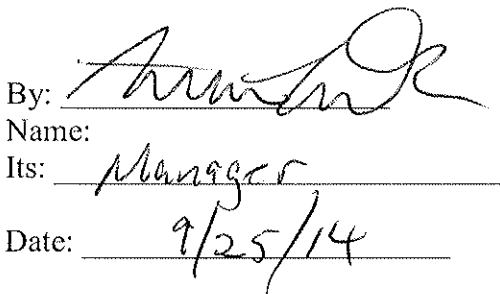 By:
Name:
Its: Manager
Date: 9/25/14